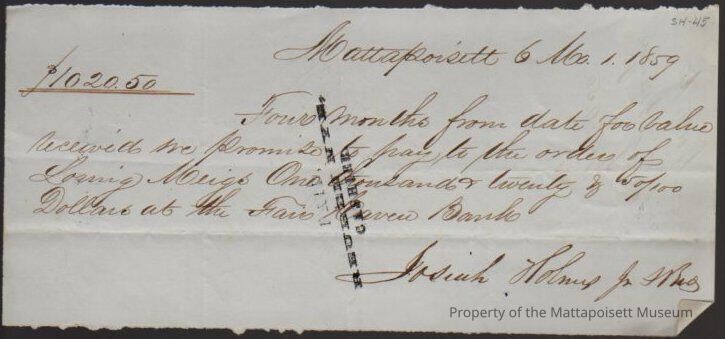 SH-45
Mattapoisett 6 Mo. 1. 1859
$1020.50
Four months from date for value
received we promise to pay to the order of
Loring Meigs One thousand & twenty & 50/100
Dollars at the Fair Haven Bank
Josiah Holmes Jr & Bro
CASHIER
Property of the Mattapoisett Museum